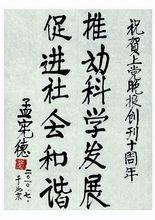 祝贺上党晚报创刊十周年
推动科学发展
促进社会和谐
孟宪德
二〇〇七
于北京